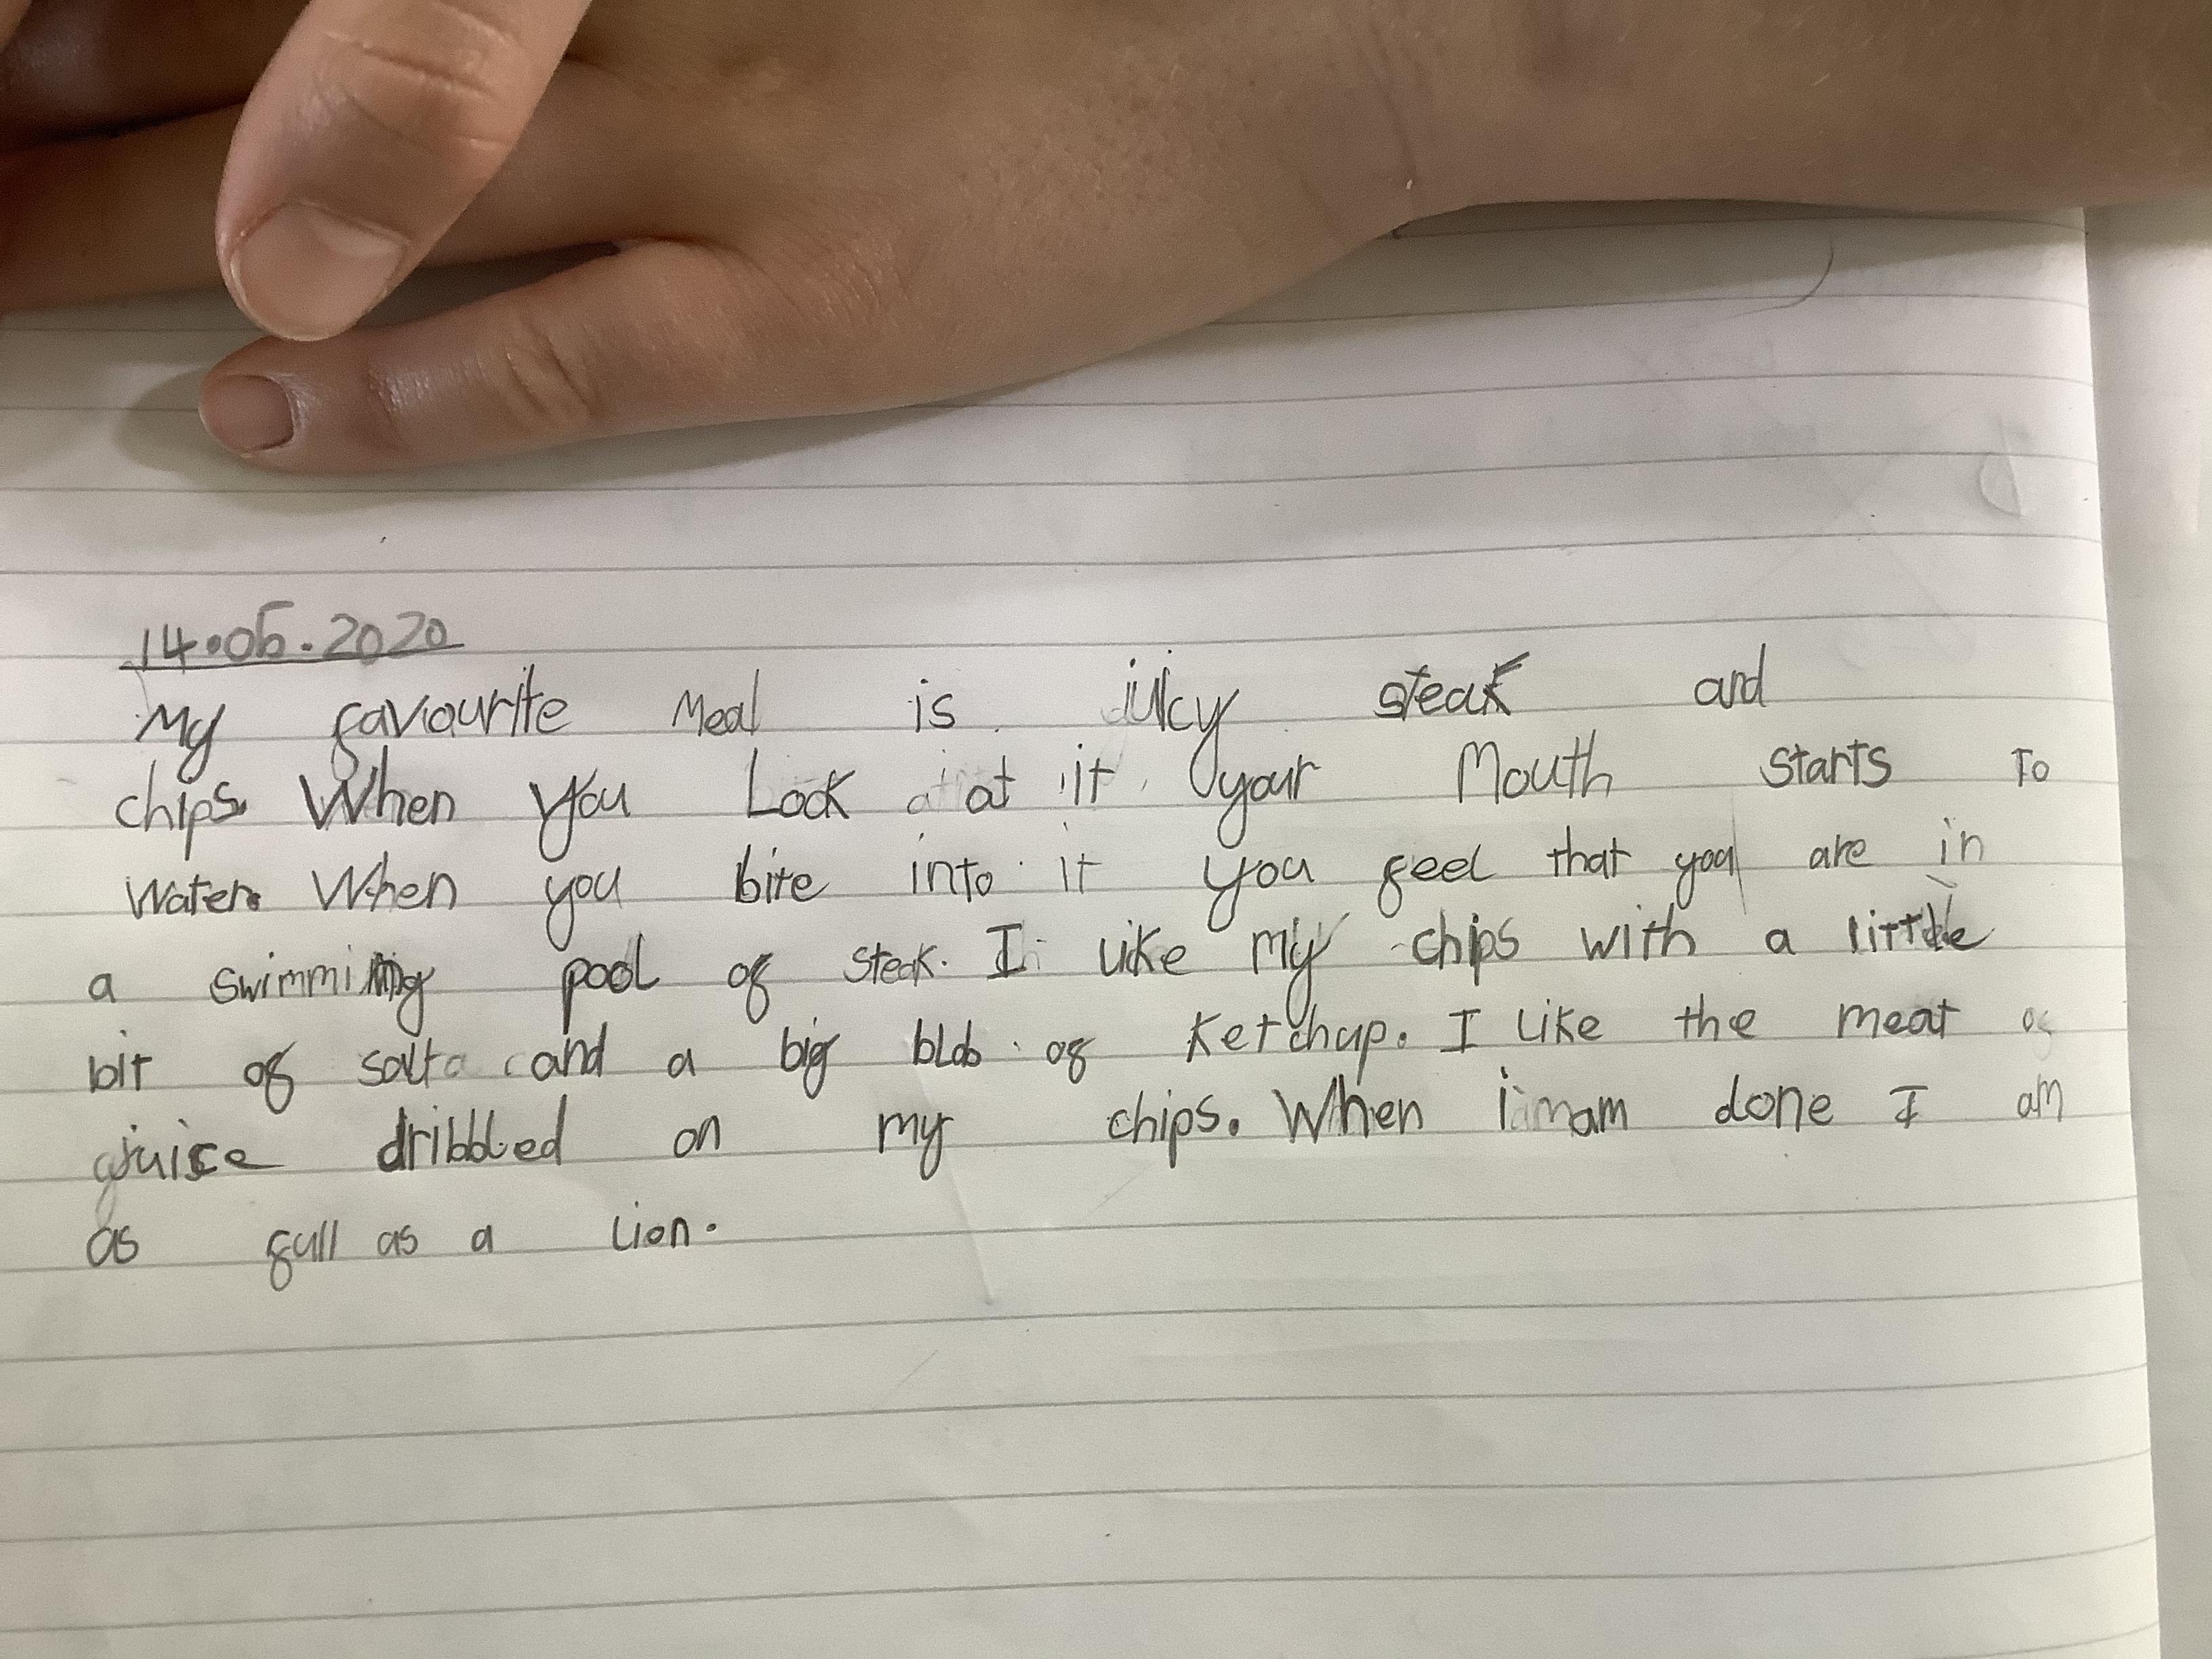 14.06.2020
My favourite Meal is juicy steak and
chips. When you Look at it your Mouth starts To
Water. When you bite into it you feel that you are in
a swimming pool of steak. I like My chips with a little
bit of salt and a big blob of Ketchup. I Like the meat
juice dribbled on my chips. When I am done I am
as full as a Lion.